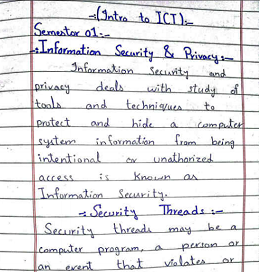 -:(Intro to ICT):-
Semester 01:-
-:Information Security & Privacy:-
Information Security and
privacy deals with study of
tools and techniques to
protect and hide a computer
system information from being
intentional or unathorized
access is known as
Information Security.
-: Security Threads :-
Security threads may be a
computer program, a person or
an event that violates or